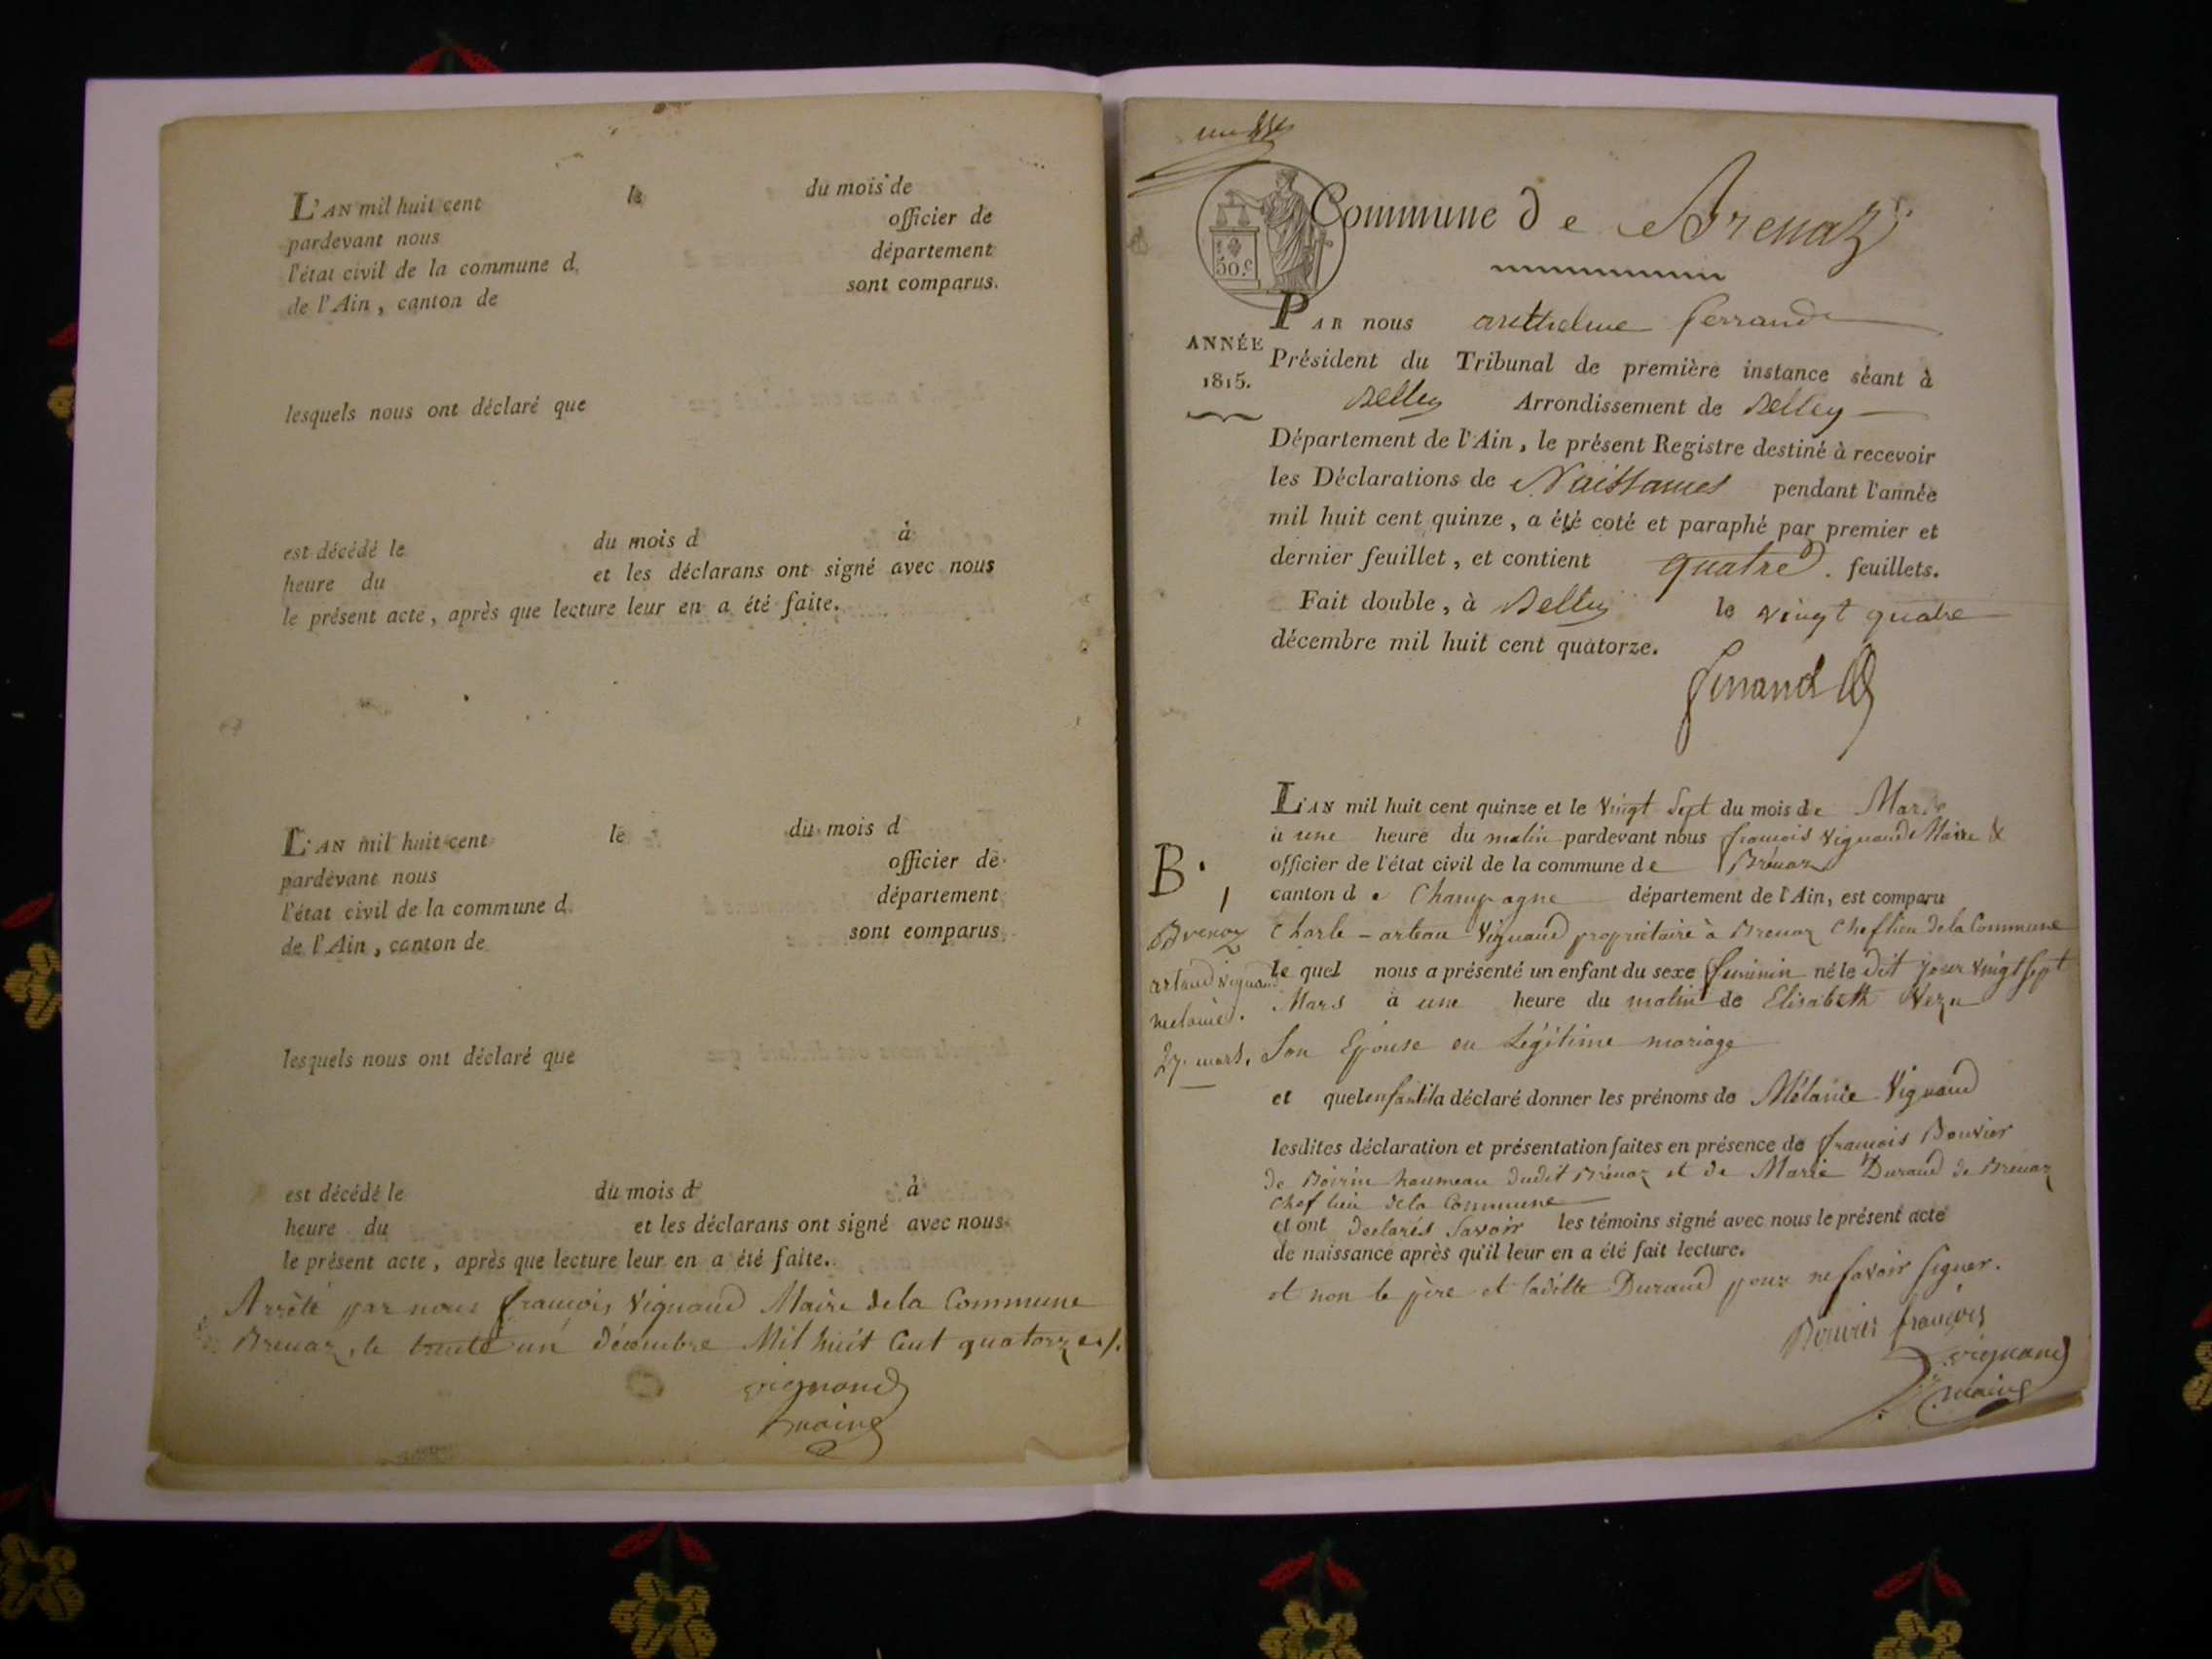 L'AN mil huit cent le du mois de
pardevant nous officier de
l'état civil de la commune d département
de l'Ain, canton de sont comparus.
lesquels nous ont déclaré que
est décédé le du mois d à
heure du et les déclarans ont signé avec nous
le présent acte, après que lecture leur en a été faite.
L'AN mil huit cent le du mois d
pardevant nous officier de
l'état civil de la commune d département
de l'Ain, canton de sont comparus
lesquels nous ont déclaré que
est décédé le du mois d à
heure du et les déclarans ont signé avec nous
le présent acte, après que lecture leur en a été faite.
Arrêté par nous françois Vignaud Maire de la Commune
Brenaz, le trente un décembre Mil huit Cent quatorze ./.
vignaud
maire
50.c
Commune de Brenaz
PAR nous anthelme ferrand
ANNÉE
1815.
Président du Tribunal de première instance séant à
Belley Arrondissement de Belley
Département de l'Ain, le présent Registre destiné à recevoir
les Déclarations de Naissances pendant l'année
mil huit cent quinze, a été coté et paraphé par premier et
dernier feuillet, et contient quatre feuillets.
Fait double, à Belley le vingt quatre
décembre mil huit cent quatorze.
ferrand
L'AN mil huit cent quinze et le vingt Sept du mois de Mars
à une heure du matin pardevant nous françois Vignaud Maire &
officier de l'état civil de la commune de Brénaz
canton de Champagne département de l'Ain, est comparu
Charle - arteau Vignaud propriétaire à Brenaz Chef lieu de la Commune
le quel nous a présenté un enfant du sexe feminin né le dit jour vingt sept
Mars à une heure du matin de Elisabeth Vezu
Son Epouse en Légitime mariage
et quel enfant il a déclaré donner les prénoms de Mélanie Vignaud
lesdites déclaration et présentation faites en présence de françois Bouvier
de Boirin haumeau dudit Brénaz et de Marie Durand de Brenaz
Chef lieu de la Commune
et ont declarés Savoir les témoins signé avec nous le présent acte
de naissance après qu'il leur en a été fait lecture.
et non le père et laditte Durand pour ne savoir signer.
Bouvier françois
vignaud
maire
B. 1
Brenaz
artaud vignaud
melanie.
27. mars.